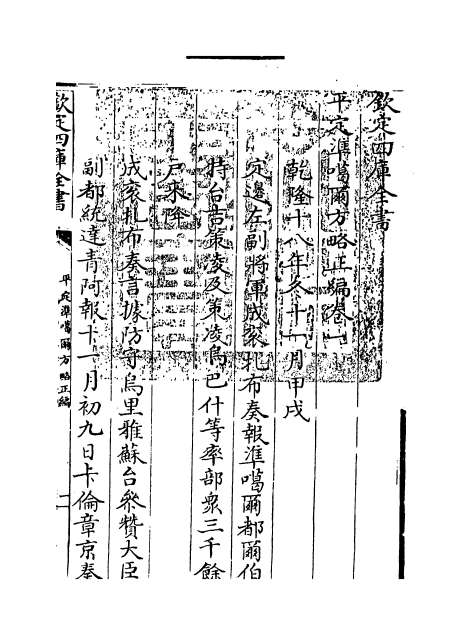 欽定四庫全書
平定準噶爾方略正編卷一
乾隆十八年冬十一月甲戌
定邊左副將軍成衮札布奏報準噶爾都爾伯
特台吉策凌及策凌烏巴什等率部衆三千餘
戶來降
成衮札布奏言據防守烏里雅蘇台叅贊大臣
副都統達青阿報十一月初九日卡倫章京奏
欽定四庫全書
平定準噶爾方略正編
一